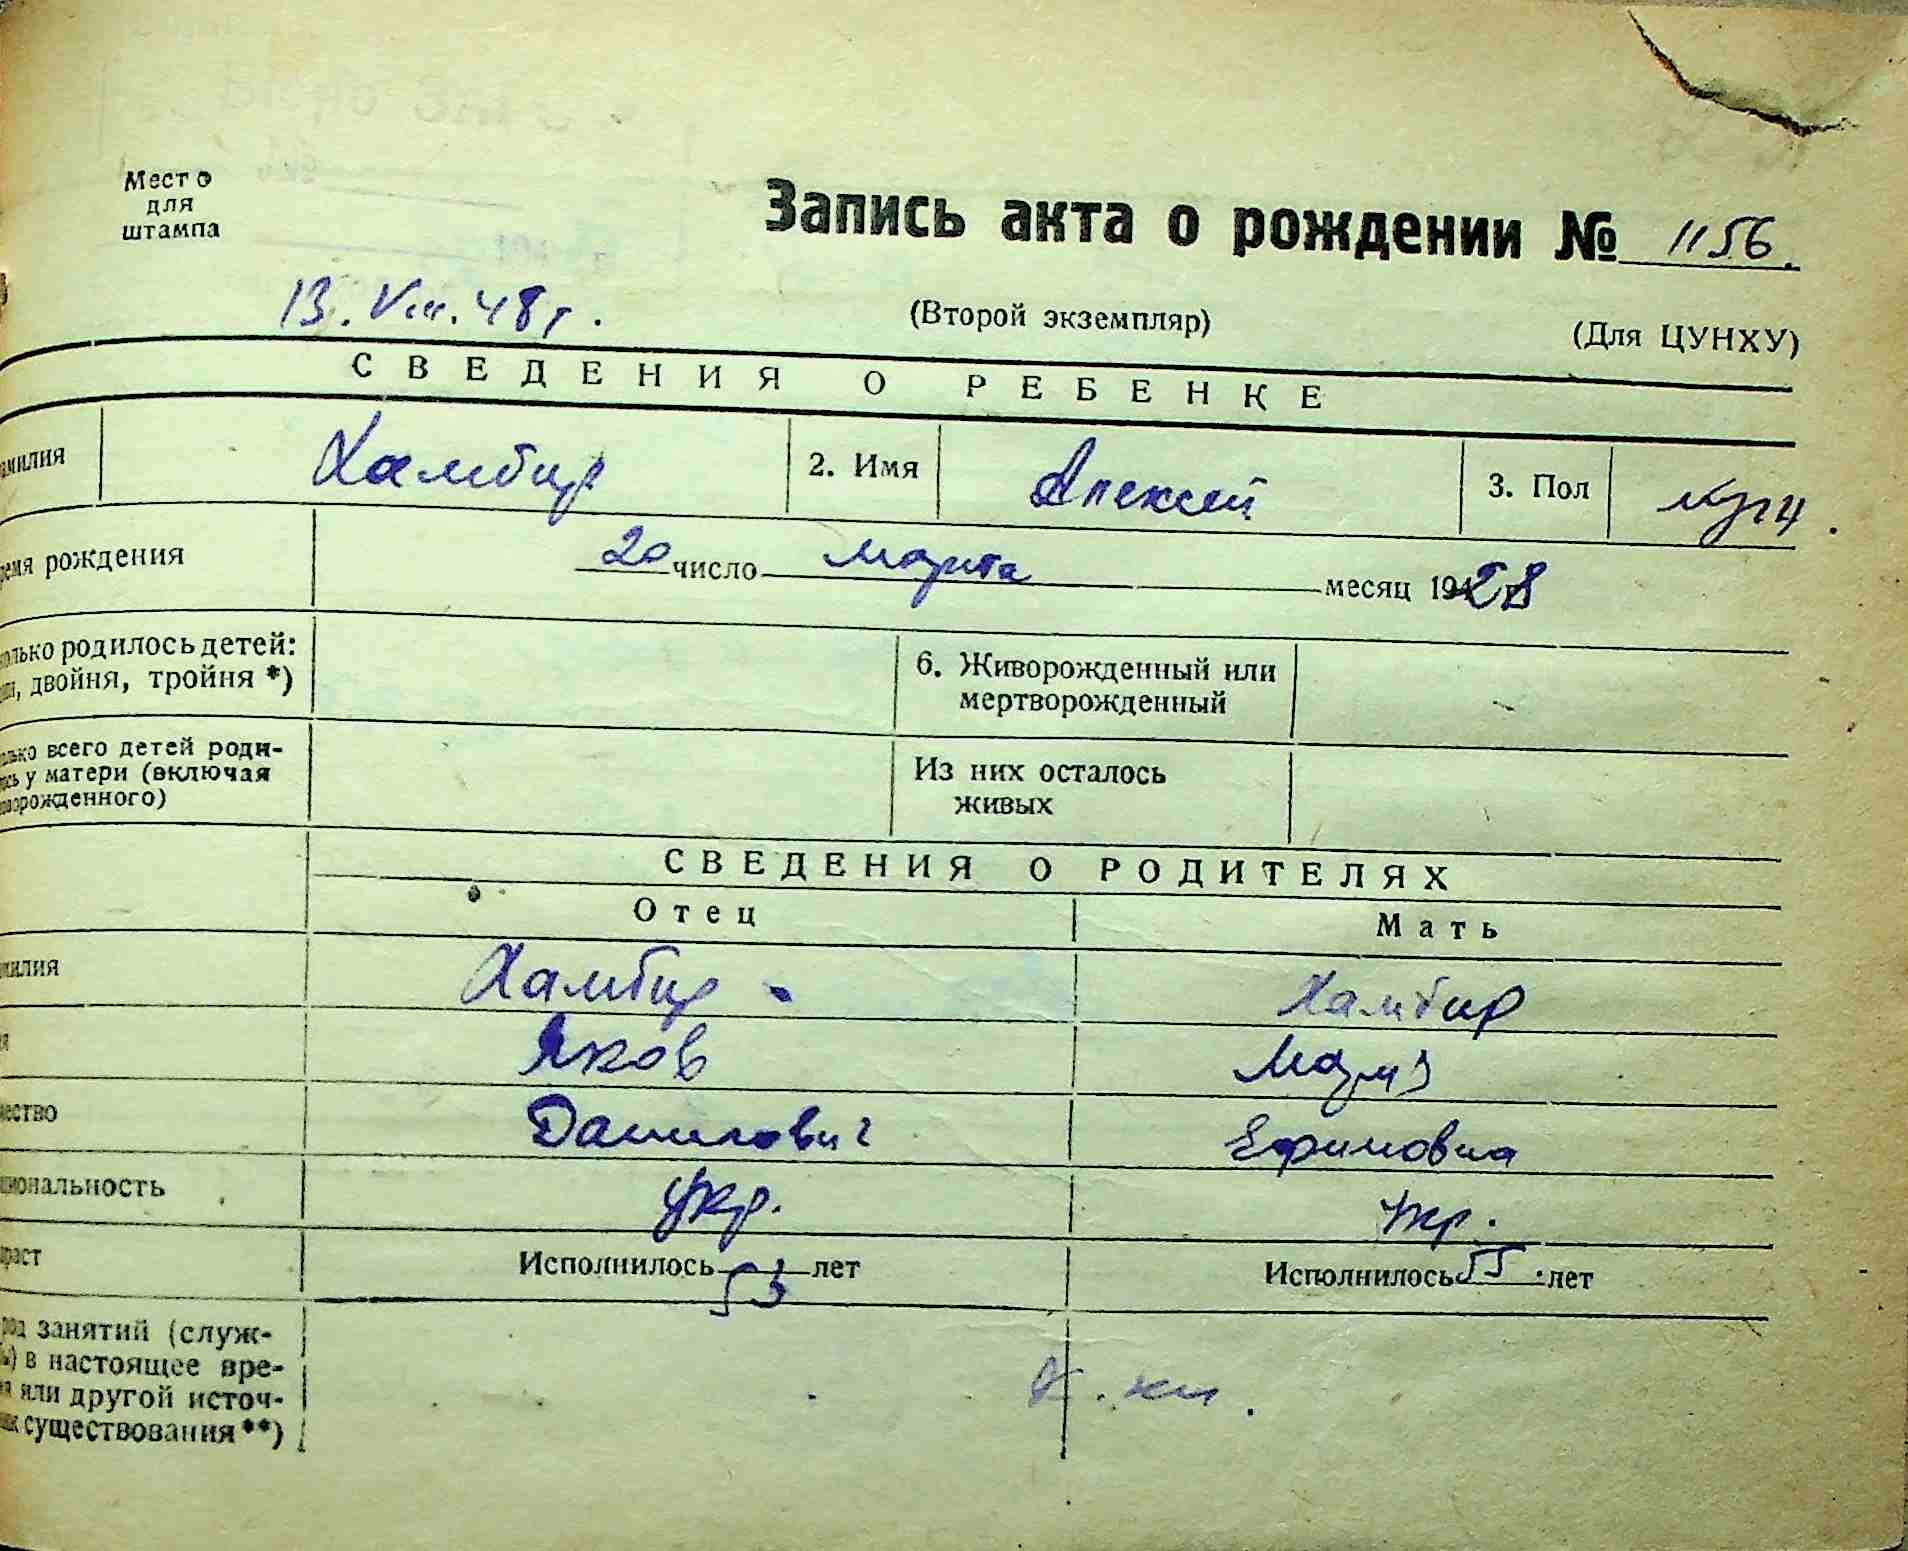 Место
для
штампа
Запись акта о рождении № 1156.
13. VIII. 48 г.
(Второй экземпляр)
(Для ЦУНХУ)
СВЕДЕНИЯ О РЕБЕНКЕ
амилия Хамбир 2. Имя Алексей 3. Пол муж.
ремя рождения 20 число марта месяц 1928
олько родилось детей:
, двойня, тройня *)
6. Живорожденный или
мертворожденный
олько всего детей роди-
ось у матери (включая
ворожденного)
Из них осталось
живых
СВЕДЕНИЯ О РОДИТЕЛЯХ
Отец Мать
милия Хамбир Хамбир
я Яков Мария
чество Данилович Ефимовна
циональность укр. укр.
раст Исполнилось 53 лет Исполнилось 55 лет
род занятий (служ-
бы) в настоящее вре-
я или другой источ-
ник существования **)
к. кн.